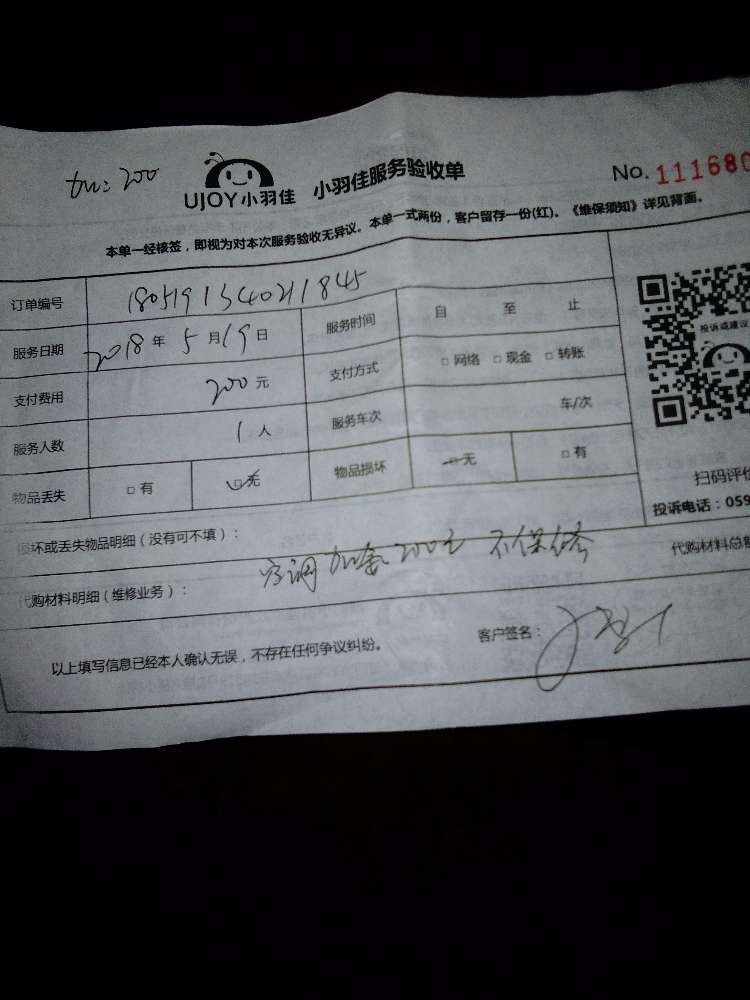 tw: 200
UJOY小羽佳 小羽佳服务验收单 No. 111680
本单一经核签，即视为对本次服务验收无异议。本单一式两份，客户留存一份(红)。《维保须知》详见背面。
订单编号 180519134021845
服务日期 2018年5月19日 服务时间 自 至 止
支付费用 200元 支付方式 □网络 □现金 □转账
服务人数 1人 服务车次 车/次
物品丢失 □有 □无 物品损坏 □无 □有
投诉或建议
扫码评价
投诉电话：059
损坏或丢失物品明细（没有可不填）：
代购材料明细（维修业务）： 空调加氟200元 不保修 代购材料总额
以上填写信息已经本人确认无误，不存在任何争议纠纷。 客户签名：